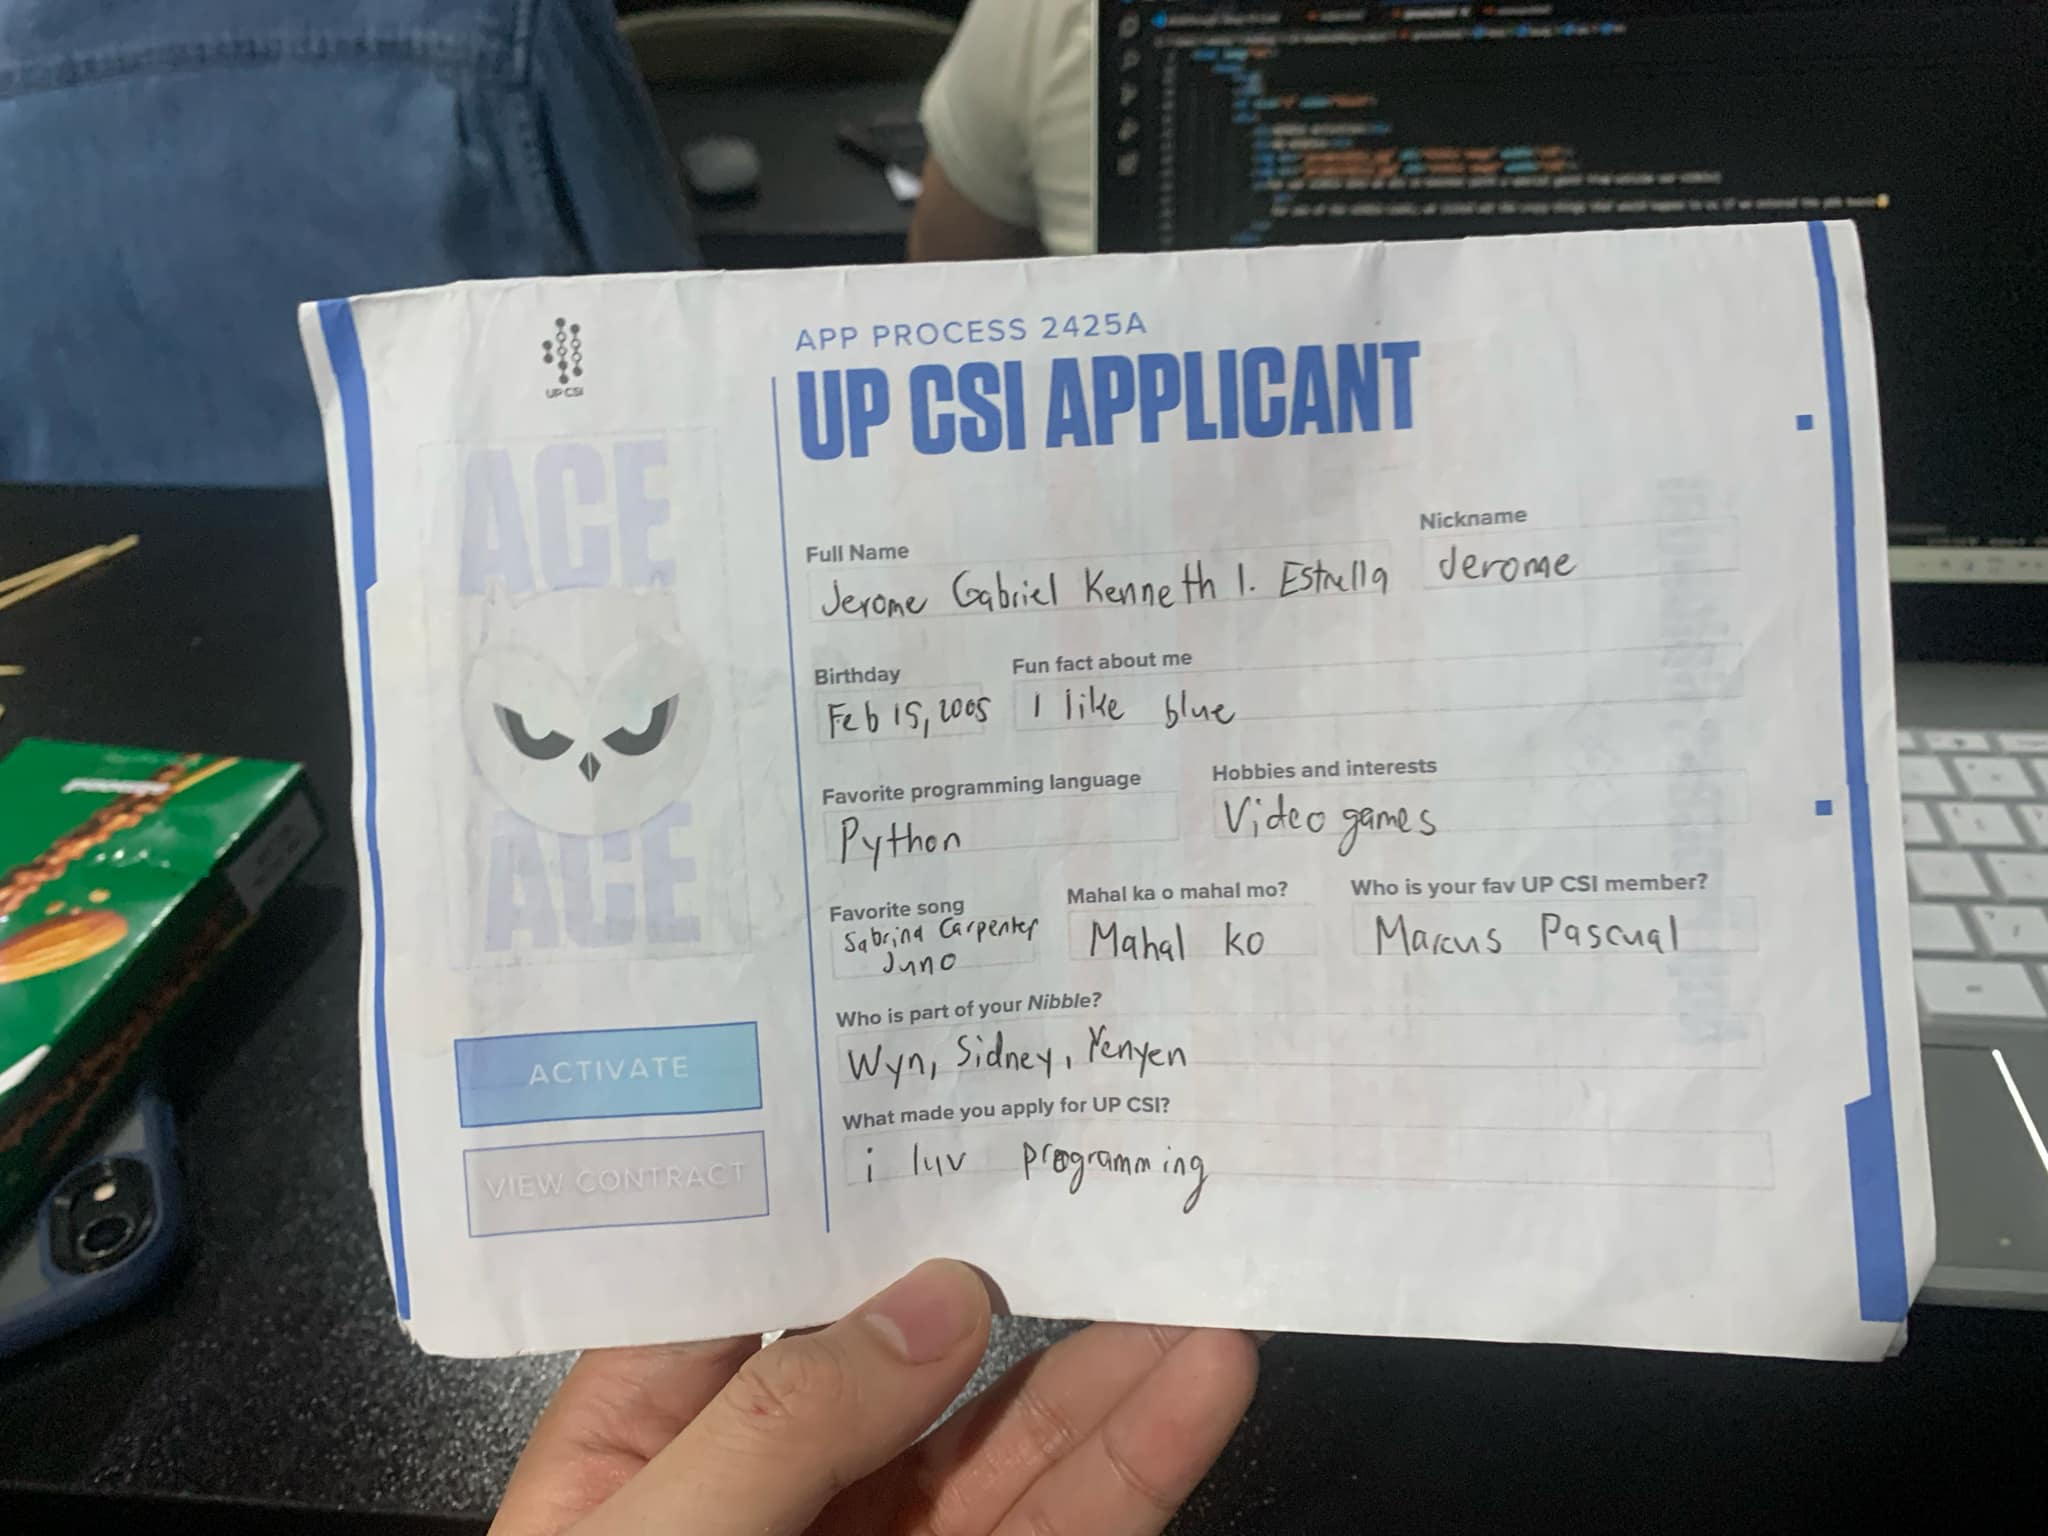 UP CSI
APP PROCESS 2425A
UP CSI APPLICANT
ACE
ACE
ACTIVATE
VIEW CONTRACT
Full Name
Jerome Gabriel Kenneth I. Estrella
Nickname
Jerome
Birthday
Feb 15, 2005
Fun fact about me
I like blue
Favorite programming language
Python
Hobbies and interests
Video games
Favorite song
Sabrina Carpenter
Juno
Mahal ka o mahal mo?
Mahal ko
Who is your fav UP CSI member?
Marcus Pascual
Who is part of your Nibble?
Wyn, Sidney, Yenyen
What made you apply for UP CSI?
i luv programming